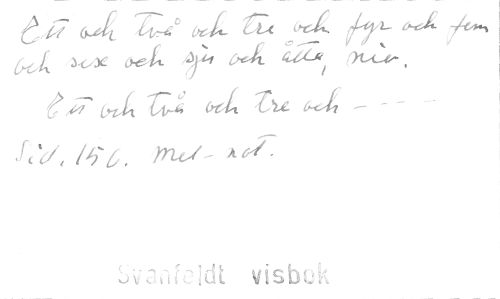 Ett och två och tre och fyr och fem
och sexe och sju och åtta, nio.
Ett och två och tre och - - - -
Sid. 156. Mel-not.
Svanfeldt visbok